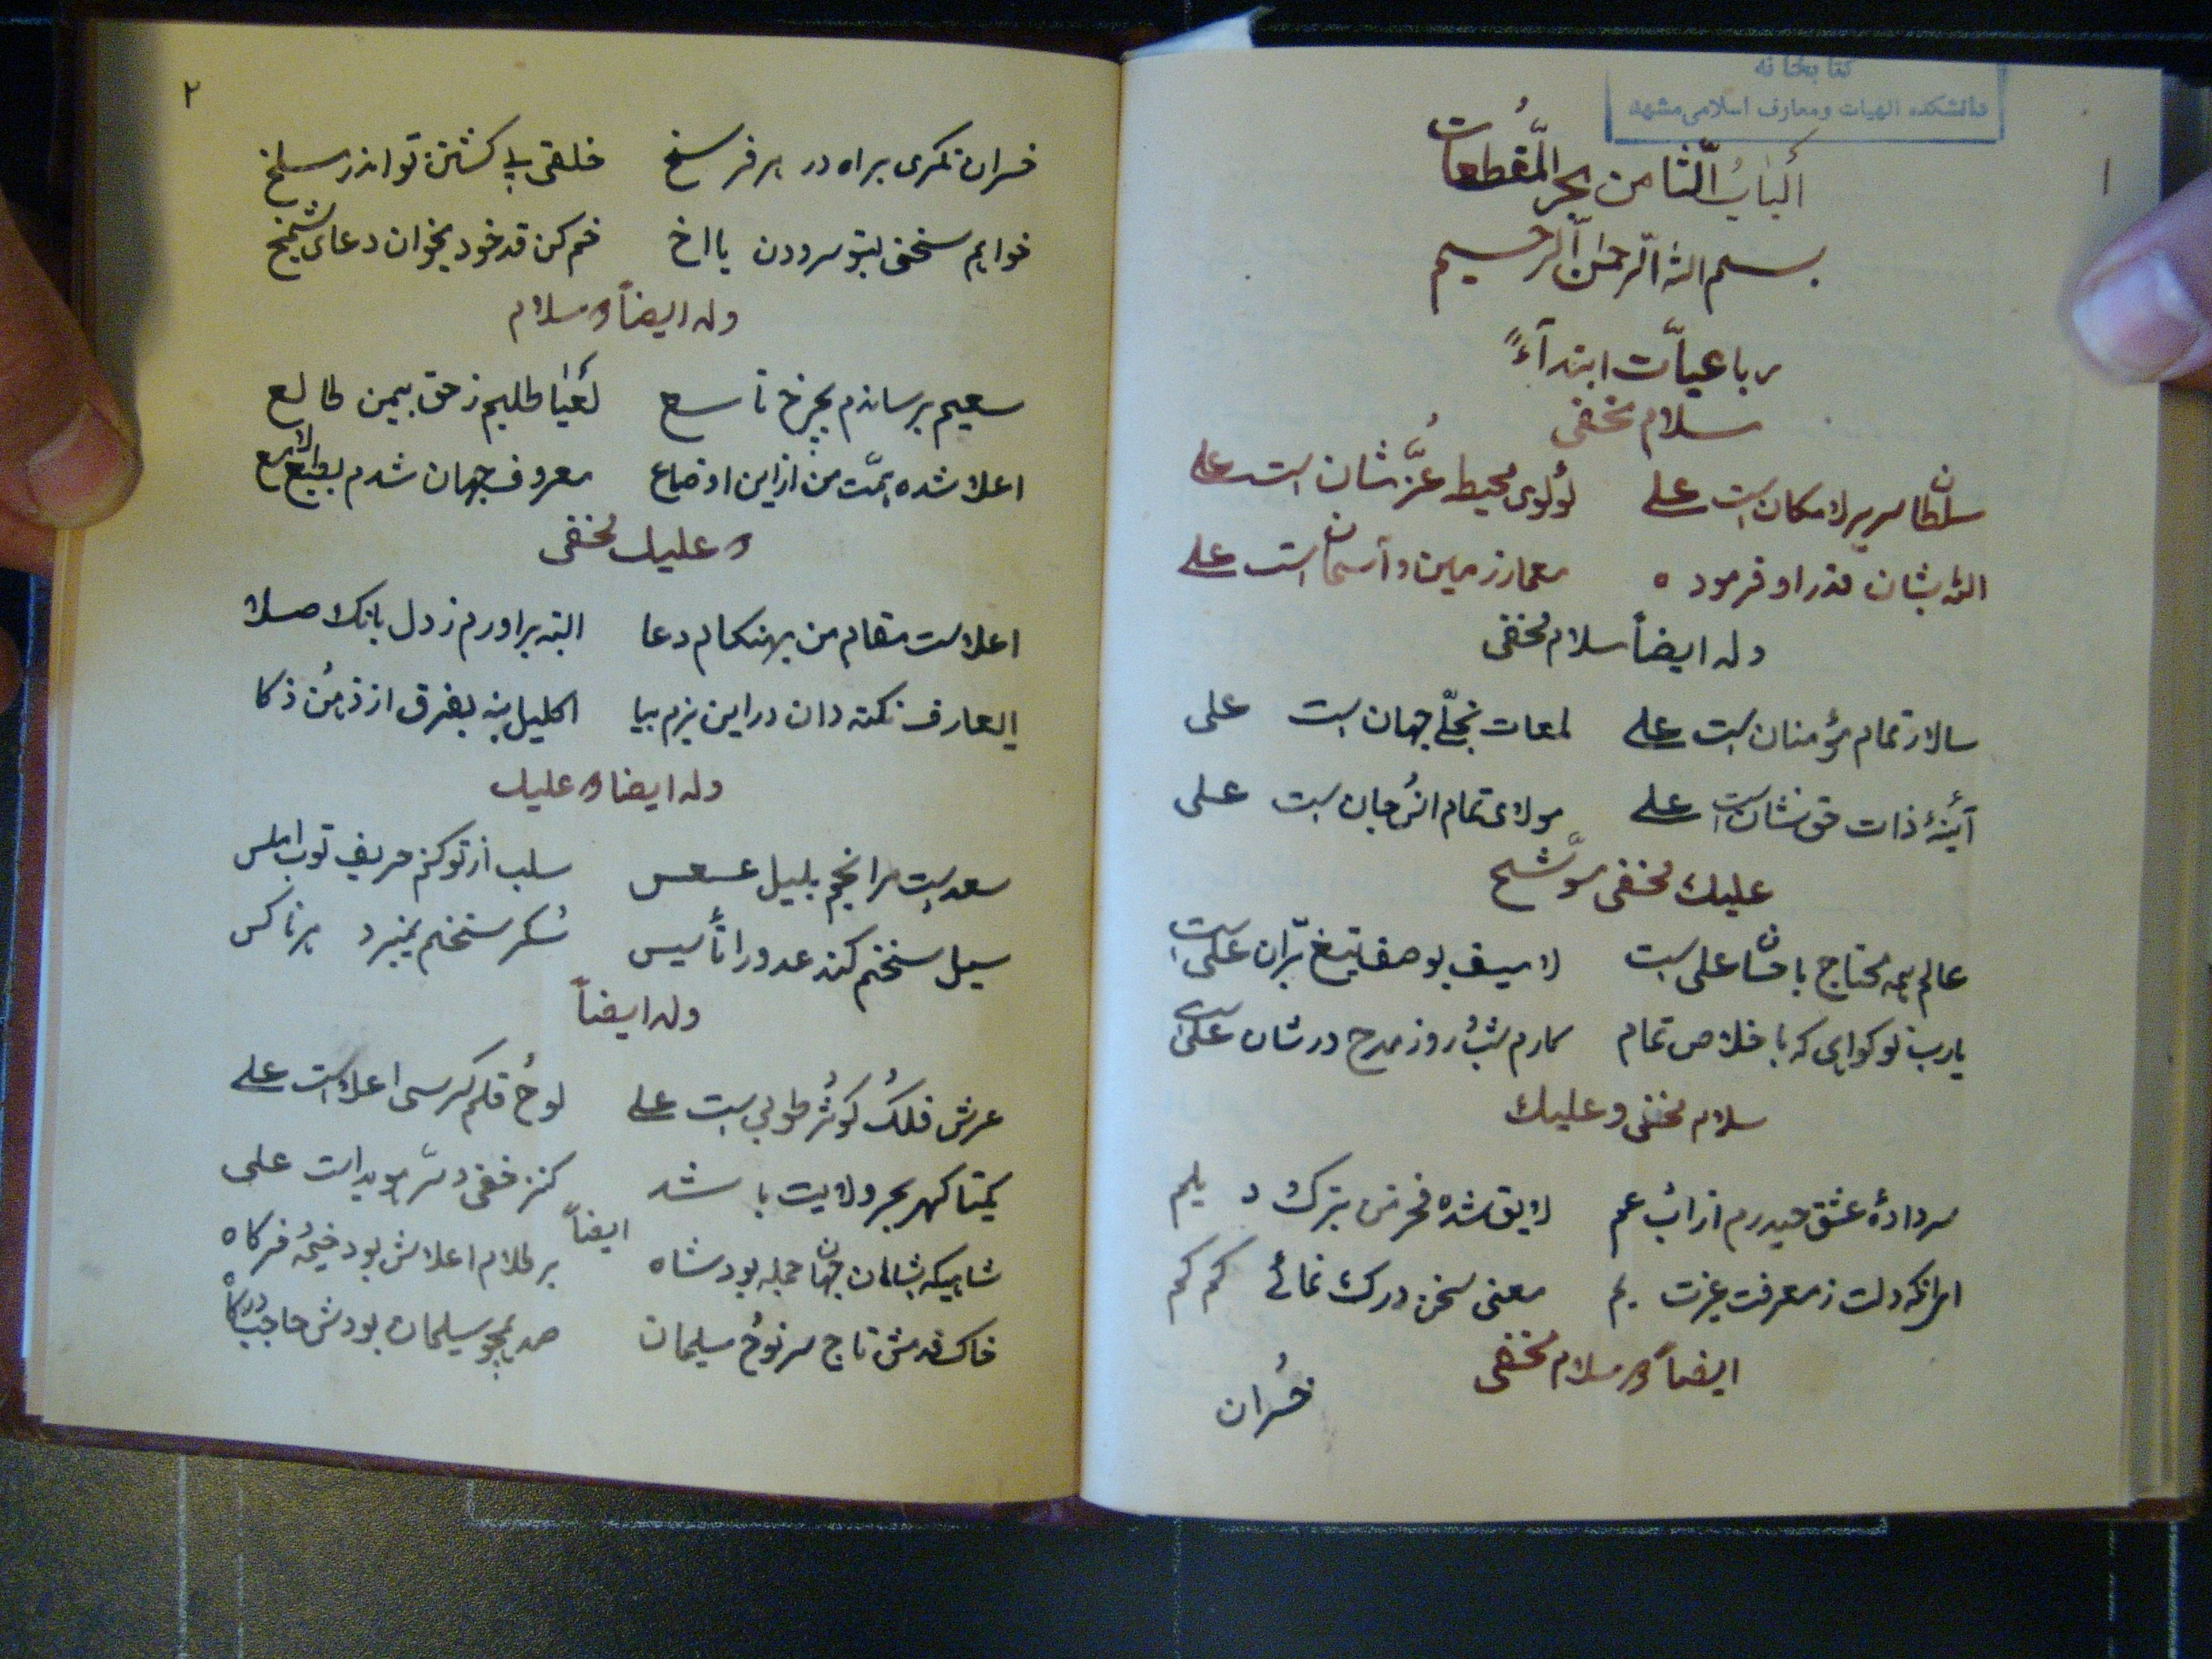 کتابخانه
دانشکده الهیات و معارف اسلامی مشهد
۱
ألبابُ الثّامن بحر المّقُطعات
بسم الله الرّحمن الرّحیم
رباعیّات ابتدآءً
سلام مخفی
سلطان سریر لامکان است علی لؤلوی محیط عزُّ شان است علی
الله بشان قدر او فرموده معمار زمین و آسمان است علی
وله ایضاً سلام مخفی
سالار تمام مؤمنان است علی لمعات تجلّی جهان است علی
آینهٔ ذات حق نشان است علی مولای تمام انسُ جان است علی
علیک مخفی موّشح
عالم همه محتاج باحسان علی است لا سیف بوصف تیغ برّان علی است
یارب تو کواهی که باخلاص تمام کارم شبُ روز مدح در شان علی است
سلام مخفی و علیک
سردادهٔ عشق حیدرم از ابُ عم لایق شده فخر من بترک دیلم
ایرانکه دلت ز معرفت عزت یم معنی سخن درک نمائے کم کم
ایضاً و سلام مخفی
خسُران
۲
خسران نکری براه در هر فرسخ خلقی پی کشتن تو اندر سلخ
خواهم سخنی بتو سرودن یا اخ خم کن قد خود بخوان دعای
وله ایضاً و سلام
سعیم برساندم بچرخ تاسع لعیا طلبم ز حق بیمن طالع
اعلا شده همّت من از این اوضاع معروف جهان شدم بطبع لامع
و علیک مخفی
اعلاست مقام من بهنکام دعا البته براورم ز دل بانک صلا
ایعارف نکته دان در این بزم بیا اکلیل بنه بفرق از ذهنُ ذکا
وله ایضا و علیک
سعد است مرا نجم بلیل عسعس سلب از تو کنم حریف توب اطلس
سیل سخنم کند عدو را تأسیس شکر سخنم نمیرد هر ناکس
وله ایضاً
عرش فلکُ کوثرُ طوبی است علی لوحُ قلم کرسی اعلاست علی
یکتا کهر بحر ولایت باشد کنز خفی و سرّ هویداست علی
ایضاً
شاهیکه بشاهان جهان جمله بود شاه بر طارم اعلاش بود خیمهُ خرکاه
خاک قدمش تاج سر نوحُ سلیمان صد همچو سلیمان بودش حاجب درکاه